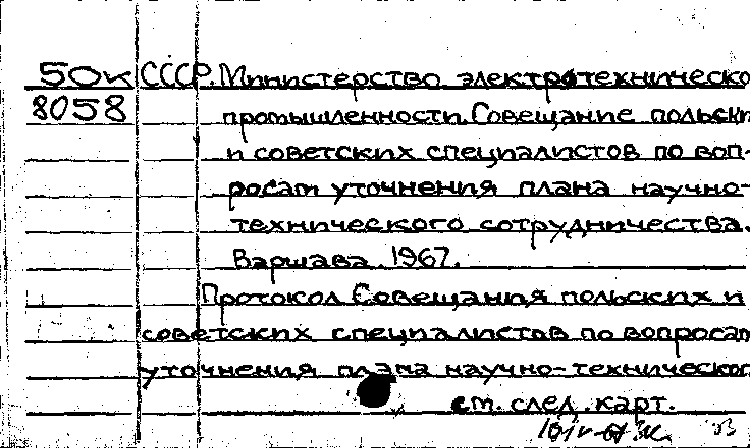 50к СССР. Министерство электротехническо
8058 промышленности. Совещание польски
и советских специалистов по воп-
росам уточнения плана научно-
технического сотрудничества.
Варшава 1967.
Протокол Совещания польских и
советских специалистов по вопросам
уточнения плана научно-техническог
см. след. карт.